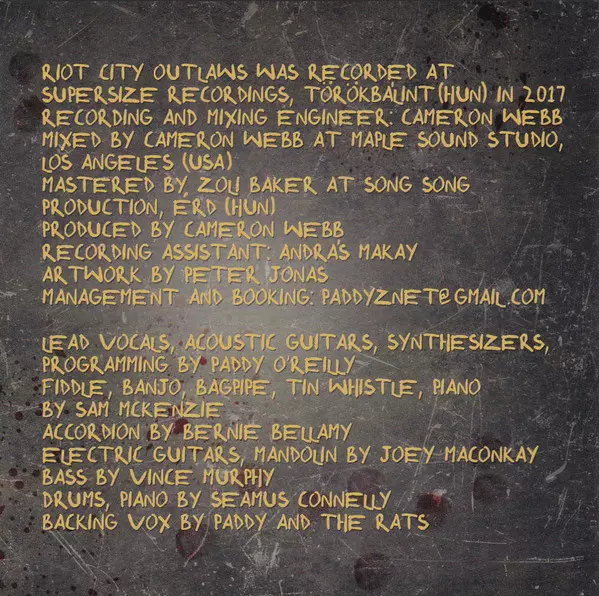 RIOT CITY OUTLAWS WAS RECORDED AT
SUPERSIZE RECORDINGS, TÖRÖKBÁLINT (HUN) IN 2017
RECORDING AND MIXING ENGINEER: CAMERON WEBB
MIXED BY CAMERON WEBB AT MAPLE SOUND STUDIO,
LOS ANGELES (USA)
MASTERED BY ZOLI BAKER AT SONG SONG
PRODUCTION, ERD (HUN)
PRODUCED BY CAMERON WEBB
RECORDING ASSISTANT: ANDRÁS MAKAY
ARTWORK BY PETER JONAS
MANAGEMENT AND BOOKING: PADDYZNET@GMAIL.COM
LEAD VOCALS, ACOUSTIC GUITARS, SYNTHESIZERS,
PROGRAMMING BY PADDY O'REILLY
FIDDLE, BANJO, BAGPIPE, TIN WHISTLE, PIANO
BY SAM MCKENZIE
ACCORDION BY BERNIE BELLAMY
ELECTRIC GUITARS, MANDOLIN BY JOEY MACONKAY
BASS BY VINCE MURPHY
DRUMS, PIANO BY SEAMUS CONNELLY
BACKING VOX BY PADDY AND THE RATS